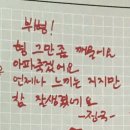 부형!
형 그만좀 깨욱어요
아파죽겠어요
언제나 느끼는 거지만
참 잘생겼네요
-정국-